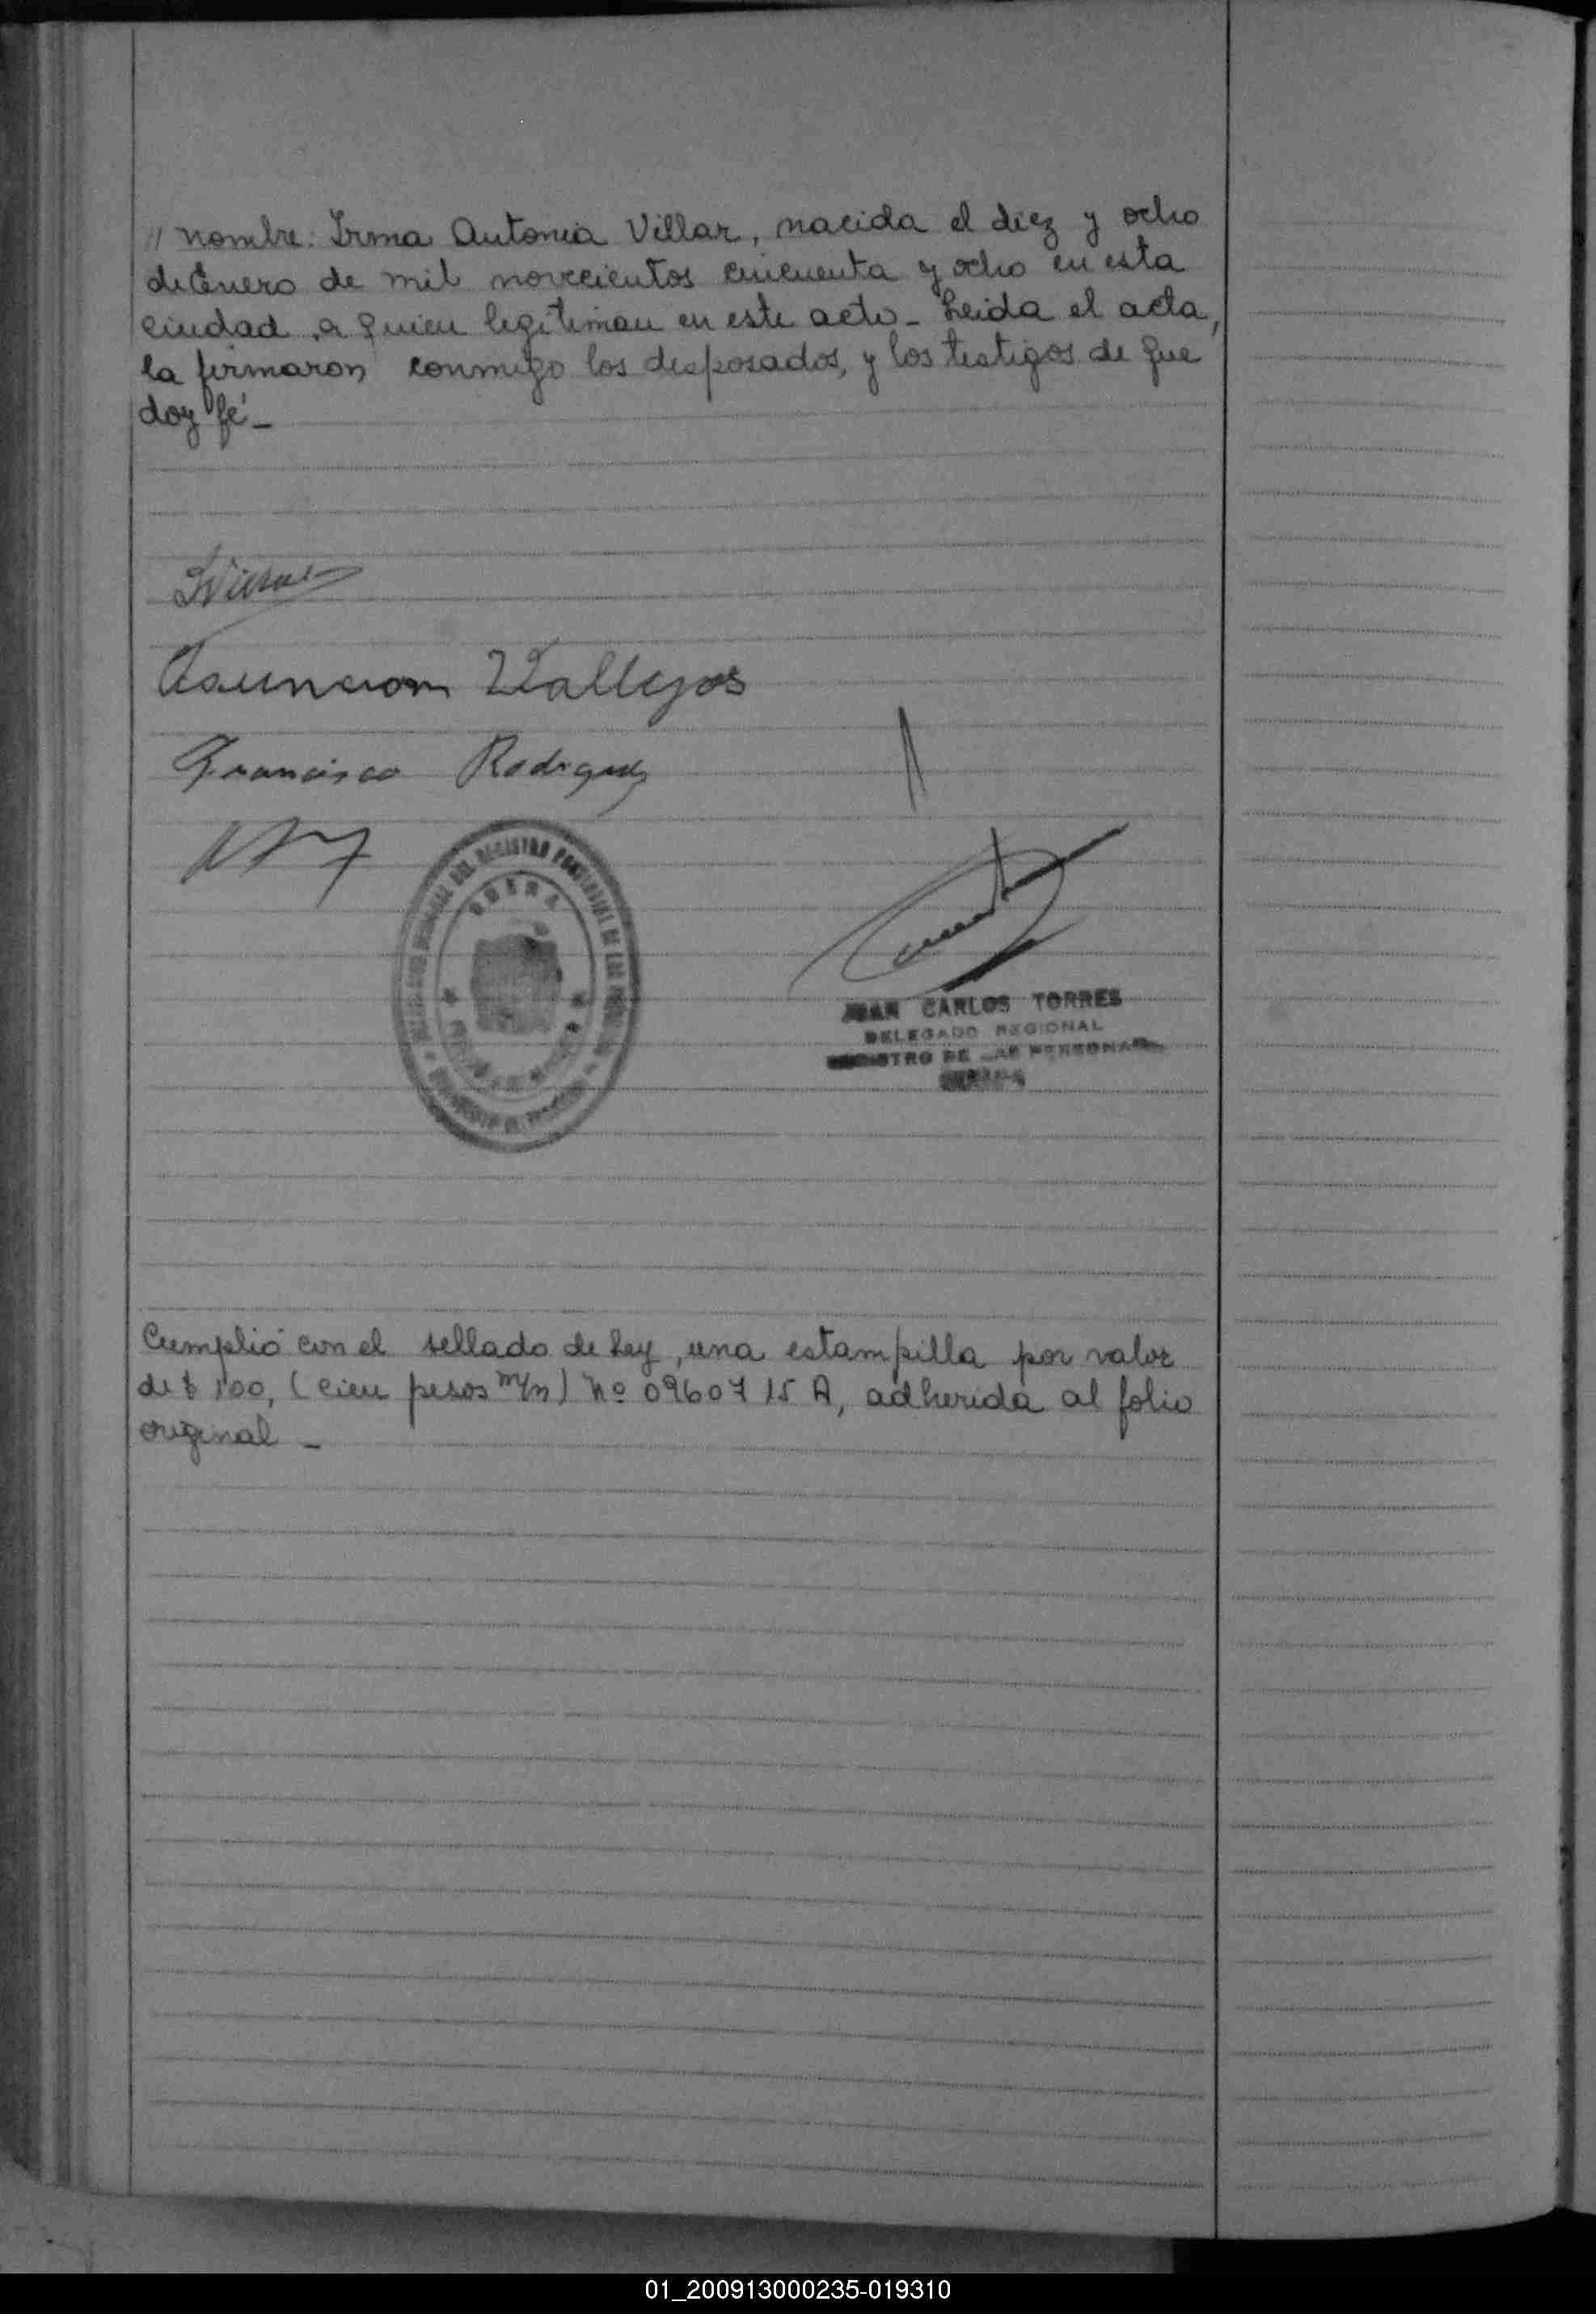 // nombre: Irma Antonia Villar, nacida el diez y ocho
de Enero de mil novecientos cincuenta y ocho en esta
ciudad a quien legitiman en este acto_ Leida el acta,
la firmaron conmigo los desposados, y los testigos de que
doy fé_
Asuncion Vallejos
Francisco Rodriguez
OBERA
JUAN CARLOS TORRES
DELEGADO REGIONAL
REGISTRO DE LAS PERSONAS
Cumplió con el sellado de Ley, una estampilla por valor
de $ 100, (cien pesos m/n) Nº 0960715 A, adherida al folio
original_
01_200913000235-019310